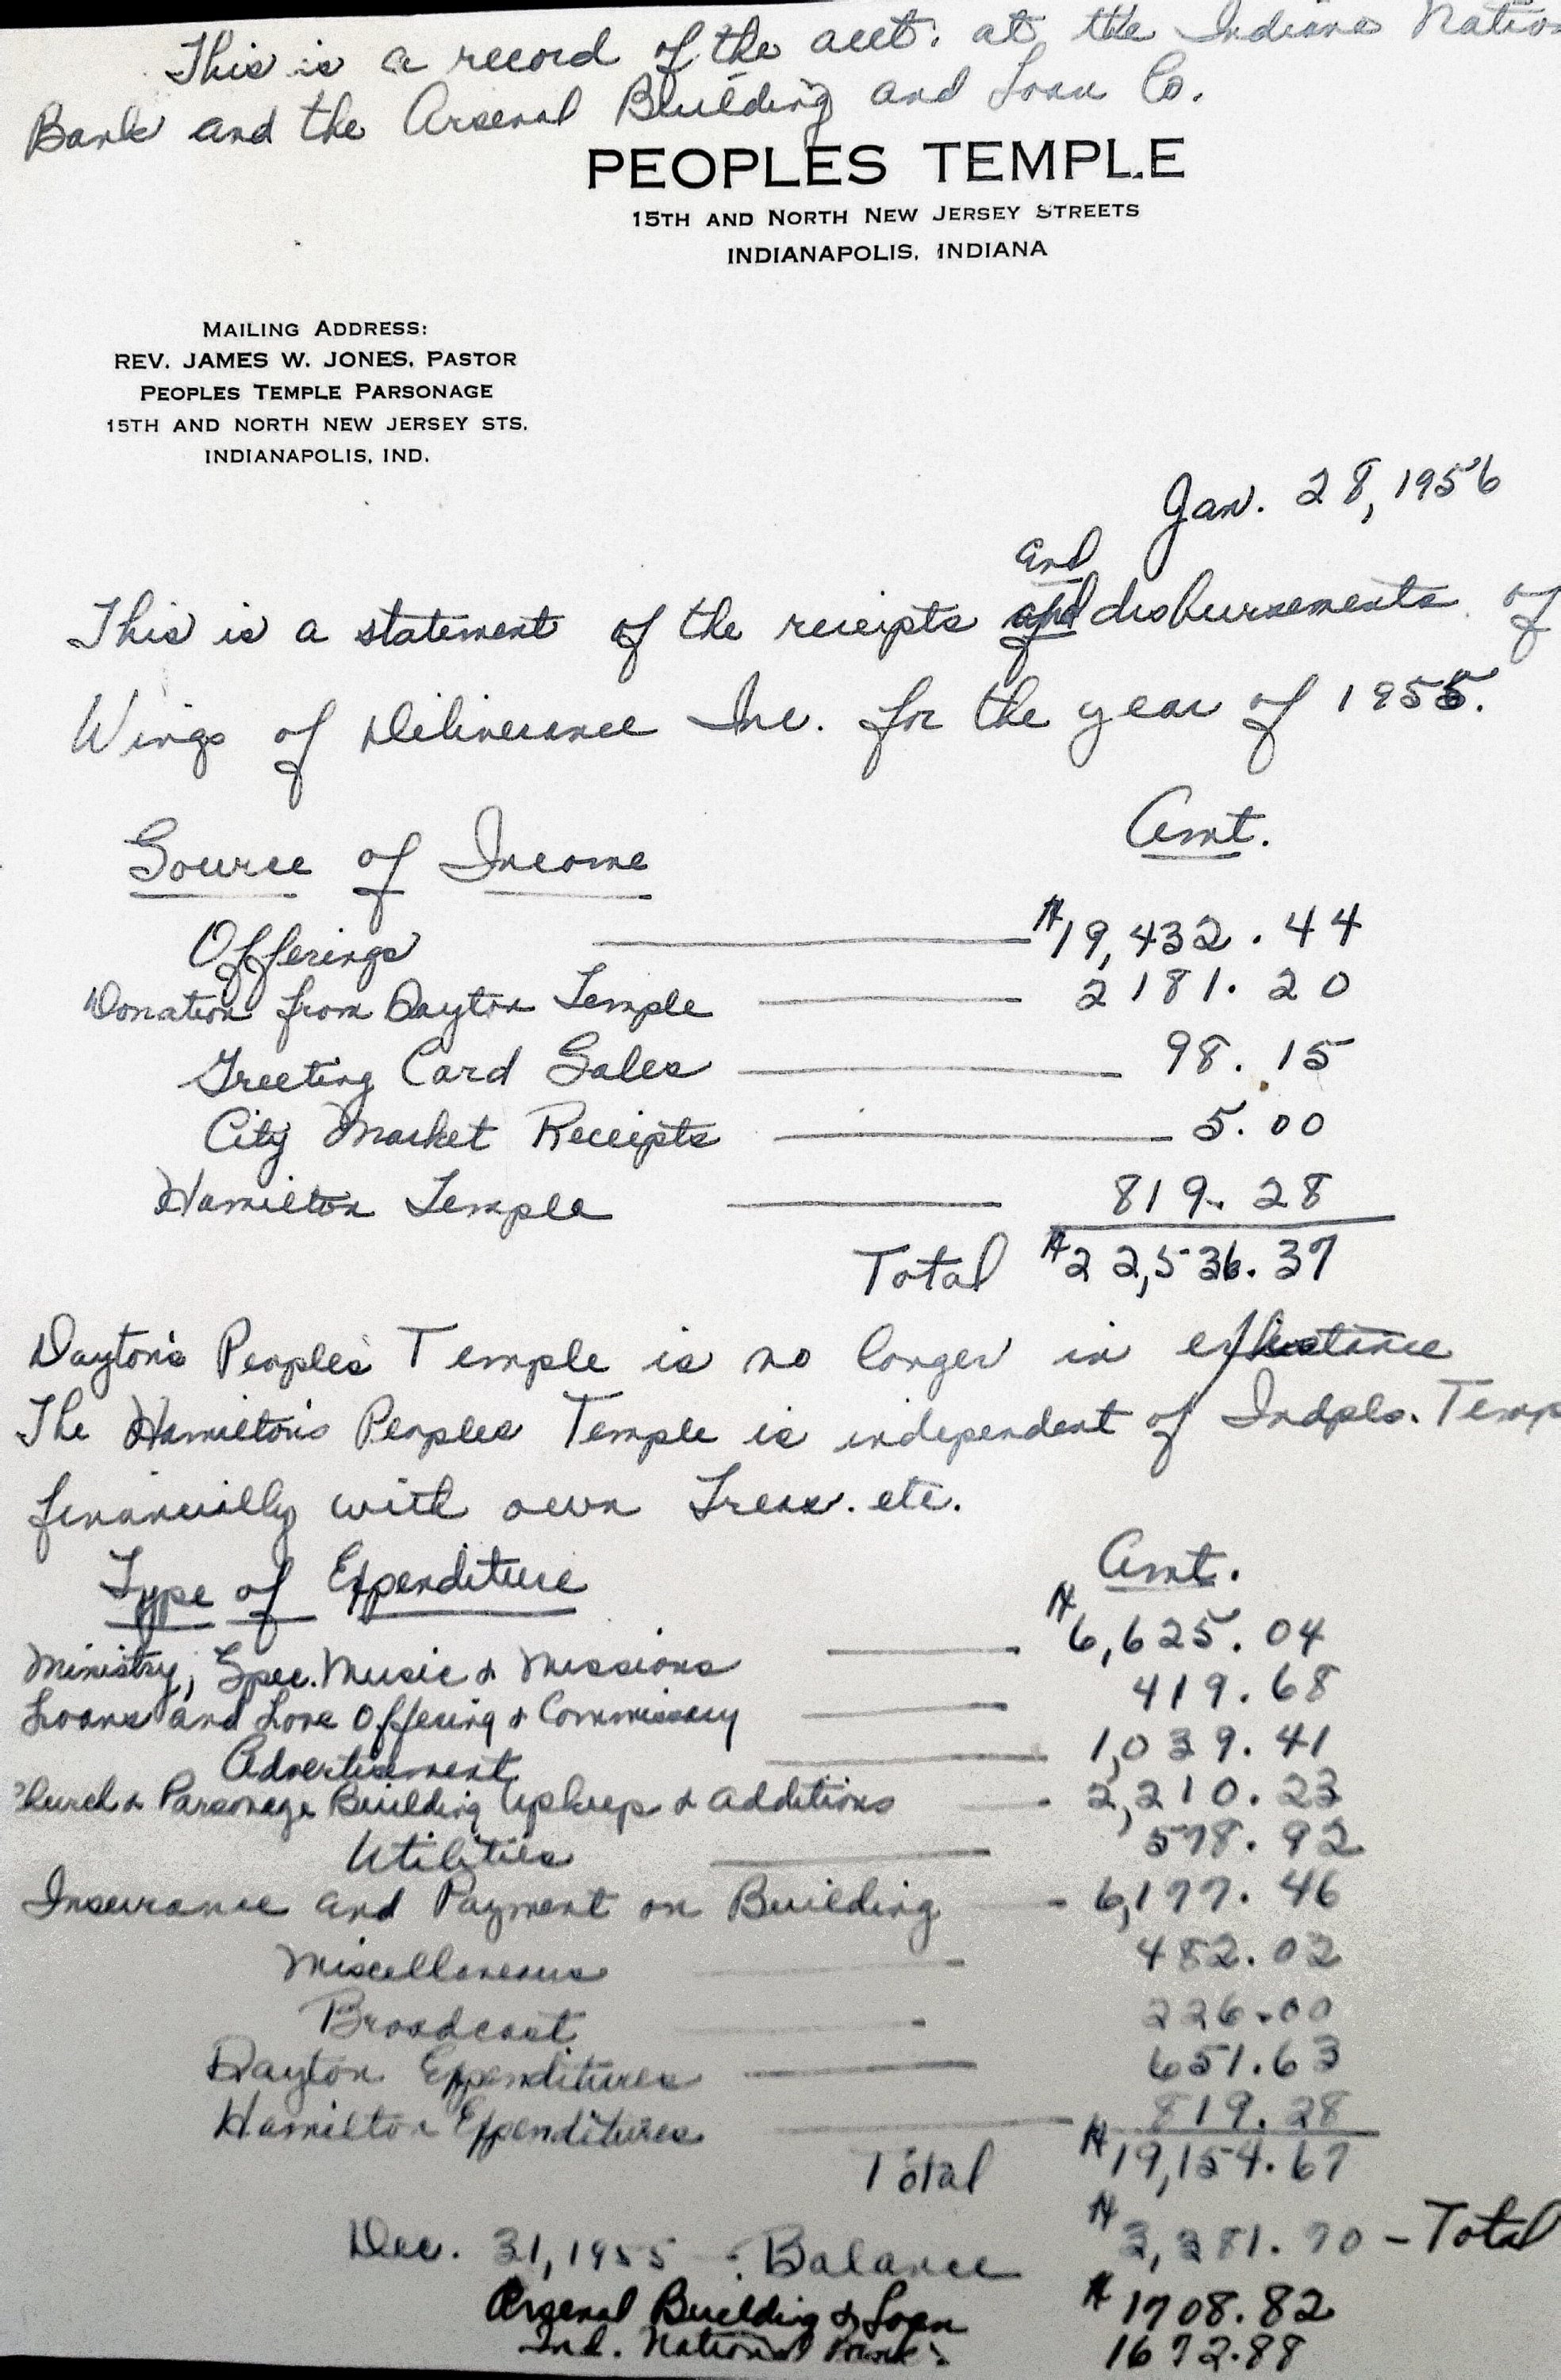 This is a record of the acct. at the Indiana Nation
Bank and the Arsenal Building and Loan Co.
PEOPLES TEMPLE
15TH AND NORTH NEW JERSEY STREETS
INDIANAPOLIS, INDIANA
MAILING ADDRESS:
REV. JAMES W. JONES, PASTOR
PEOPLES TEMPLE PARSONAGE
15TH AND NORTH NEW JERSEY STS.
INDIANAPOLIS, IND.
Jan. 28, 1956
and
This is a statement of the receipts disbursements of
Wings of Deliverance Inc. for the year of 1955.
Source of Income Amt.
Offerings $19,432.44
Donation from Dayton Temple 2181.20
Greeting Card Sales 98.15
City Market Receipts 5.00
Hamilton Temple 819.28
Total $22,536.37
Dayton's Peoples Temple is no longer in
The Hamilton's Peoples Temple is independent of Indpls. Temp
financially with own Treas. etc.
Type of Expenditure Amt.
Ministry, Spec. Music & Missions $6,625.04
Loans and Love Offering & Commissary 419.68
Advertisement 1,039.41
Church & Parsonage Building Upkeep & Additions 2,210.23
Utilities 578.92
Insurance and Payment on Building 6,177.46
Miscellaneous 482.02
Broadcast 226.00
Dayton Expenditures 651.63
Hamilton Expenditures 819.28
Total $19,154.67
Dec. 31, 1955 : Balance $3,381.70 - Total
Arsenal Building & Loan $1708.82
Ind. National Bank: 1672.88